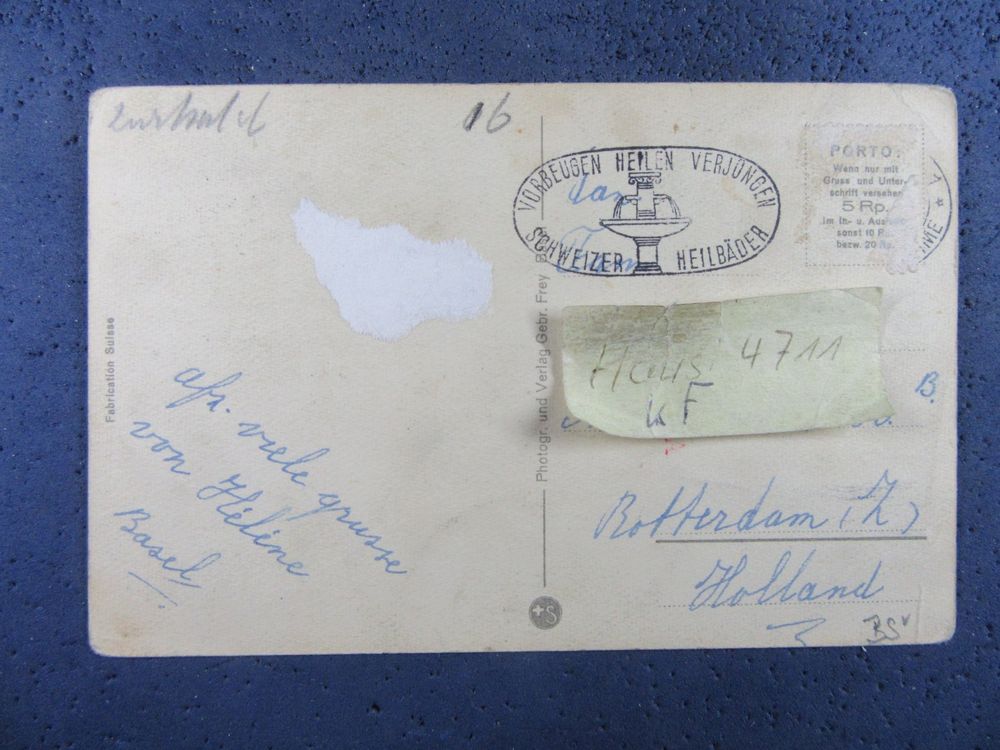 16
VORBEUGEN HEILEN VERJÜNGEN
SCHWEIZER HEILBÄDER
PORTO:
Wenn nur mit
Gruss und Unter-
schrift versehen
5 Rp.
im In- u.
sonst 10
bezw. 20
Fam
Haus 4711
k F
B.
Rotterdam (Z)
Holland
BS
viele grusse
von Hélène
Basel
Fabrication Suisse
Photogr. und Verlag Gebr. Frey